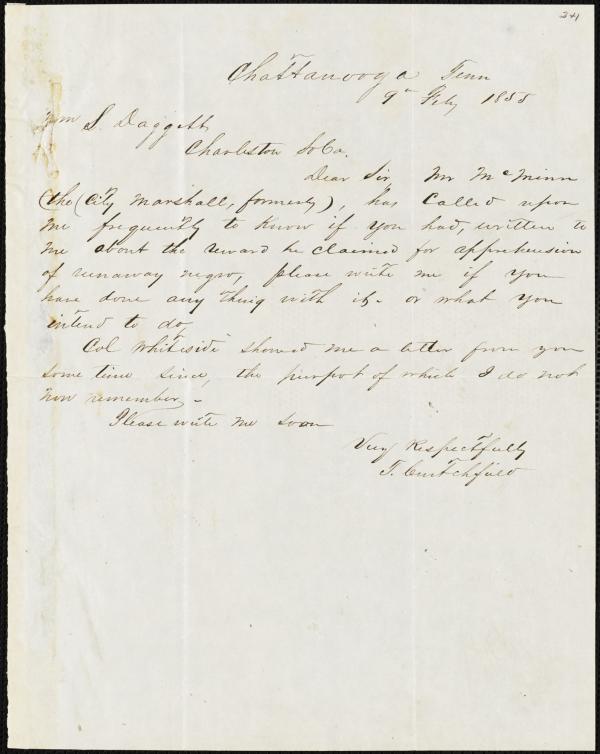 241
Chattanooga Tenn
9th Feby 1855
Wm S. Daggett
Charleston So Ca.
Dear Sir, Mr McMinn
(the (City Marshall, formerly), has Called upon
me frequently to know if you had, written to
me about the reward he claimed for apprehension
of runaway negro, please write me if you
have done any thing with it,- or what you
intend to do,
Col Whiteside showed me a letter from you
some time since, the purport of which I do not
now remember,-
Please write me soon
Very Respectfully
T. Crutchfield